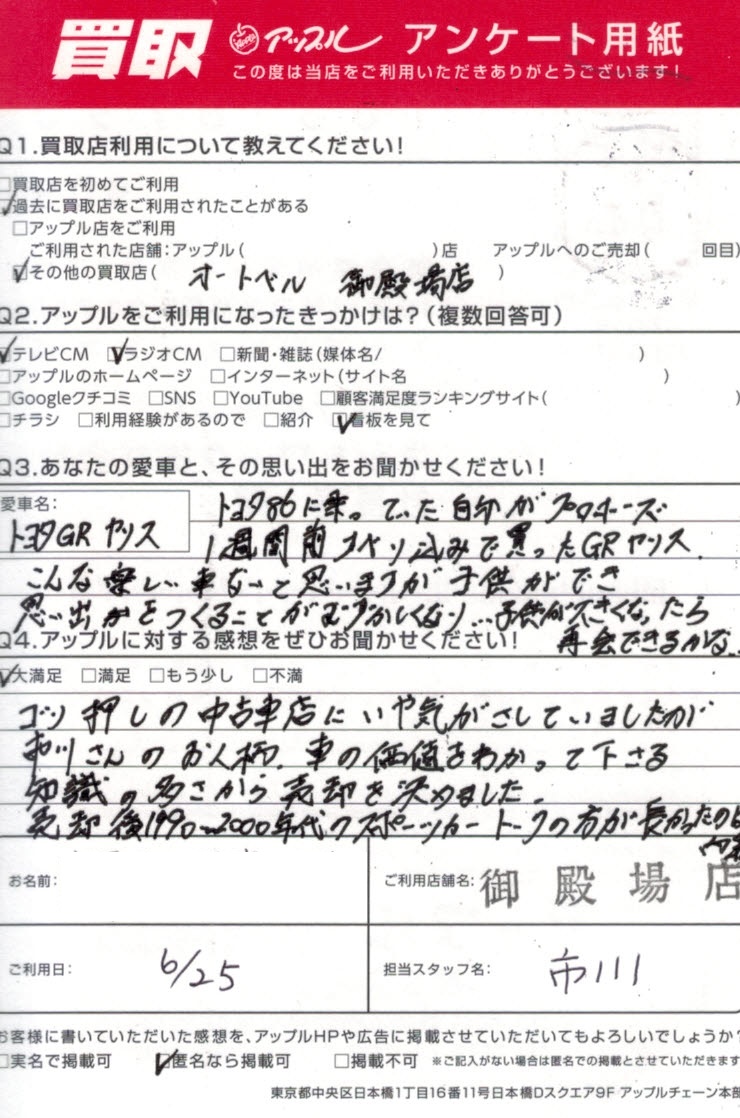 買取 アップル アンケート用紙
この度は当店をご利用いただきありがとうございます!
Q1.買取店利用について教えてください!
□買取店を初めてご利用
☑過去に買取店をご利用されたことがある
□アップル店をご利用
ご利用された店舗:アップル( )店 アップルへのご売却( 回目)
☑その他の買取店( オートベル 御殿場店 )
Q2.アップルをご利用になったきっかけは?(複数回答可)
☑テレビCM ☑ラジオCM □新聞・雑誌(媒体名/ )
□アップルのホームページ □インターネット(サイト名 )
□Googleクチコミ □SNS □YouTube □顧客満足度ランキングサイト( )
□チラシ □利用経験があるので □紹介 ☑看板を見て
Q3.あなたの愛車と、その思い出をお聞かせください!
愛車名:
トヨタGRヤリス
トヨタ86に乗っていた自分が クローズ
1週間前 すべり込みで買ったGRヤリス.
こんな楽しい車ないと思いますが子供ができ
思い出をつくることがむずかしくなり...子供が大きくなったら
再会できるかな
Q4.アップルに対する感想をぜひお聞かせください!
☑大満足 □満足 □もう少し □不満
ゴリ押しの中古車店にいや気がさしていましたが
市川さんのお人柄、車の価値をわかって下さる
知識の多さから売却を決めました.
売却後1990~2000年代のスポーツカートークの方が長かったのは
お名前:
ご利用店舗名: 御殿場店
ご利用日: 6/25
担当スタッフ名: 市川
お客様に書いていただいた感想を、アップルHPや広告に掲載させていただいてもよろしいでしょうか?
□実名で掲載可 ☑匿名なら掲載可 □掲載不可 ※ご記入がない場合は匿名での掲載とさせていただきます
東京都中央区日本橋1丁目16番11号日本橋Dスクエア9F アップルチェーン本部